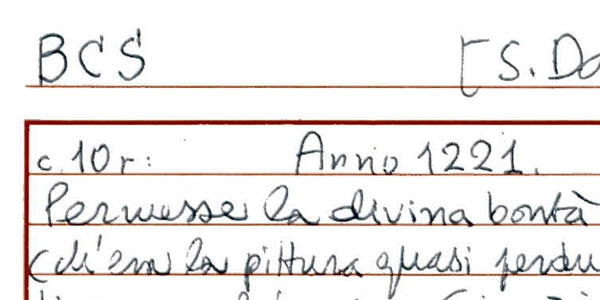 BCS [S. Do
c. 10 r: Anno 1221.
Permesse la divina bontà
(ch'era la pittura quasi perdu